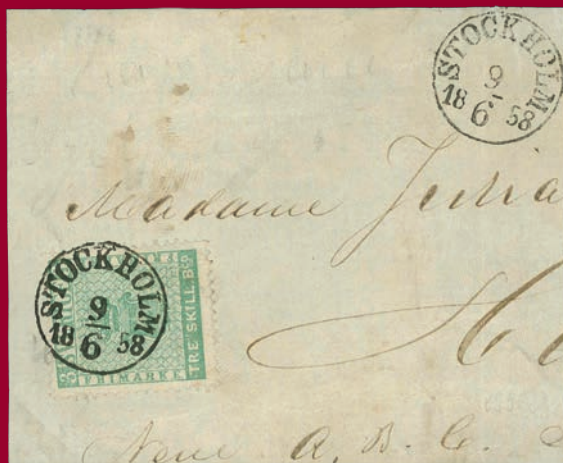 STOCKHOLM
9
18 6 58
Madame
STOCKHOLM
9
18 6 58
TRE SKILL. Bco
FRIMÄRKE
A. B. C.